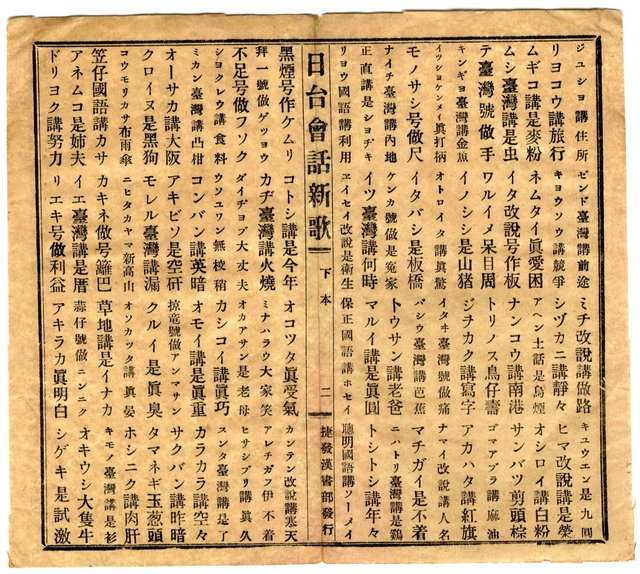 ジユシヨ講住所 ゼンド臺灣講前途 ミチ改說講做路 キユウエン是九圓
リヨコウ講旅行 キヨウソウ講競爭 シヅカニ講靜々 ヒマ改說講是榮
ムギコ講是麥粉 ネムタイ眞愛困 アヘン土話是烏煙 オシロイ講白粉
ムシ臺灣講是虫 イタ改說号作板 ナンコウ講南港 サンバツ剪頭棕
テ臺灣號做手 ワルイメ呆目周 トリノス鳥仔壽 ゴマアブラ講麻油
キンギヨ臺灣講金魚 イノシシ是山猪 ジチカク講寫字 アカハタ講紅旗
イツシヨケンメイ眞打柄 オトロイタ講眞驚 イタヰ臺灣號做痛 ナマイ改說講人名
モノサシ号做尺 イタバシ是板橋 バシウ臺灣講芭蕉 マチガイ是不着
ナイチ臺灣講內地 ケンカ號做是冤家 トウサン講老爸 ニハトリ臺灣講是鷄
正直講是シヨヂキ イツ臺灣講何時 マルイ講是眞圓 トシトシ講年々
リヨウ國語講利用 ヱイセイ改說是衛生 保正國語講ホセイ 聰明國語講ソーメイ
日台會話新歌 下本 二 捷發漢書部發行
黑煙号作ケムリ コトシ講是今年 オコツタ眞受氣 カンテン改說講寒天
拜一號做ゲツヨウ カヂ臺灣講火燒 ミナハラウ大家笑 アレチガフ伊不着
不足号做フソク ダイヂヨブ大丈夫 オカアサン是老母 ヒサシブリ講眞久
シヨクレウ講食料 ウソユウン無梭稍 カシコイ講眞巧 スンタ臺灣講是了
ミカン臺灣講凸柑 コンバン講英暗 オモイ講是眞重 カラカラ講空々
オーサカ講大阪 アキビソ是空矸 掠竜號做アンマサン サクバン講昨暗
クロイヌ是黑狗 モレル臺灣講漏 クルイ是眞臭 タマネギ玉葱頭
コウモリカサ布雨傘 ニヒタカヤマ新高山 オソカツタ講眞晏 ホシニク講肉肝
笠仔國語講カサ カキネ做号籬巴 草地講是イナカ キモノ臺灣講是衫
アネムコ是姉夫 イエ臺灣講是厝 蒜仔號做ニンニク オキウシ大隻牛
ドリヨク講努力 リエキ号做利益 アキラカ眞明白 シゲキ是試激